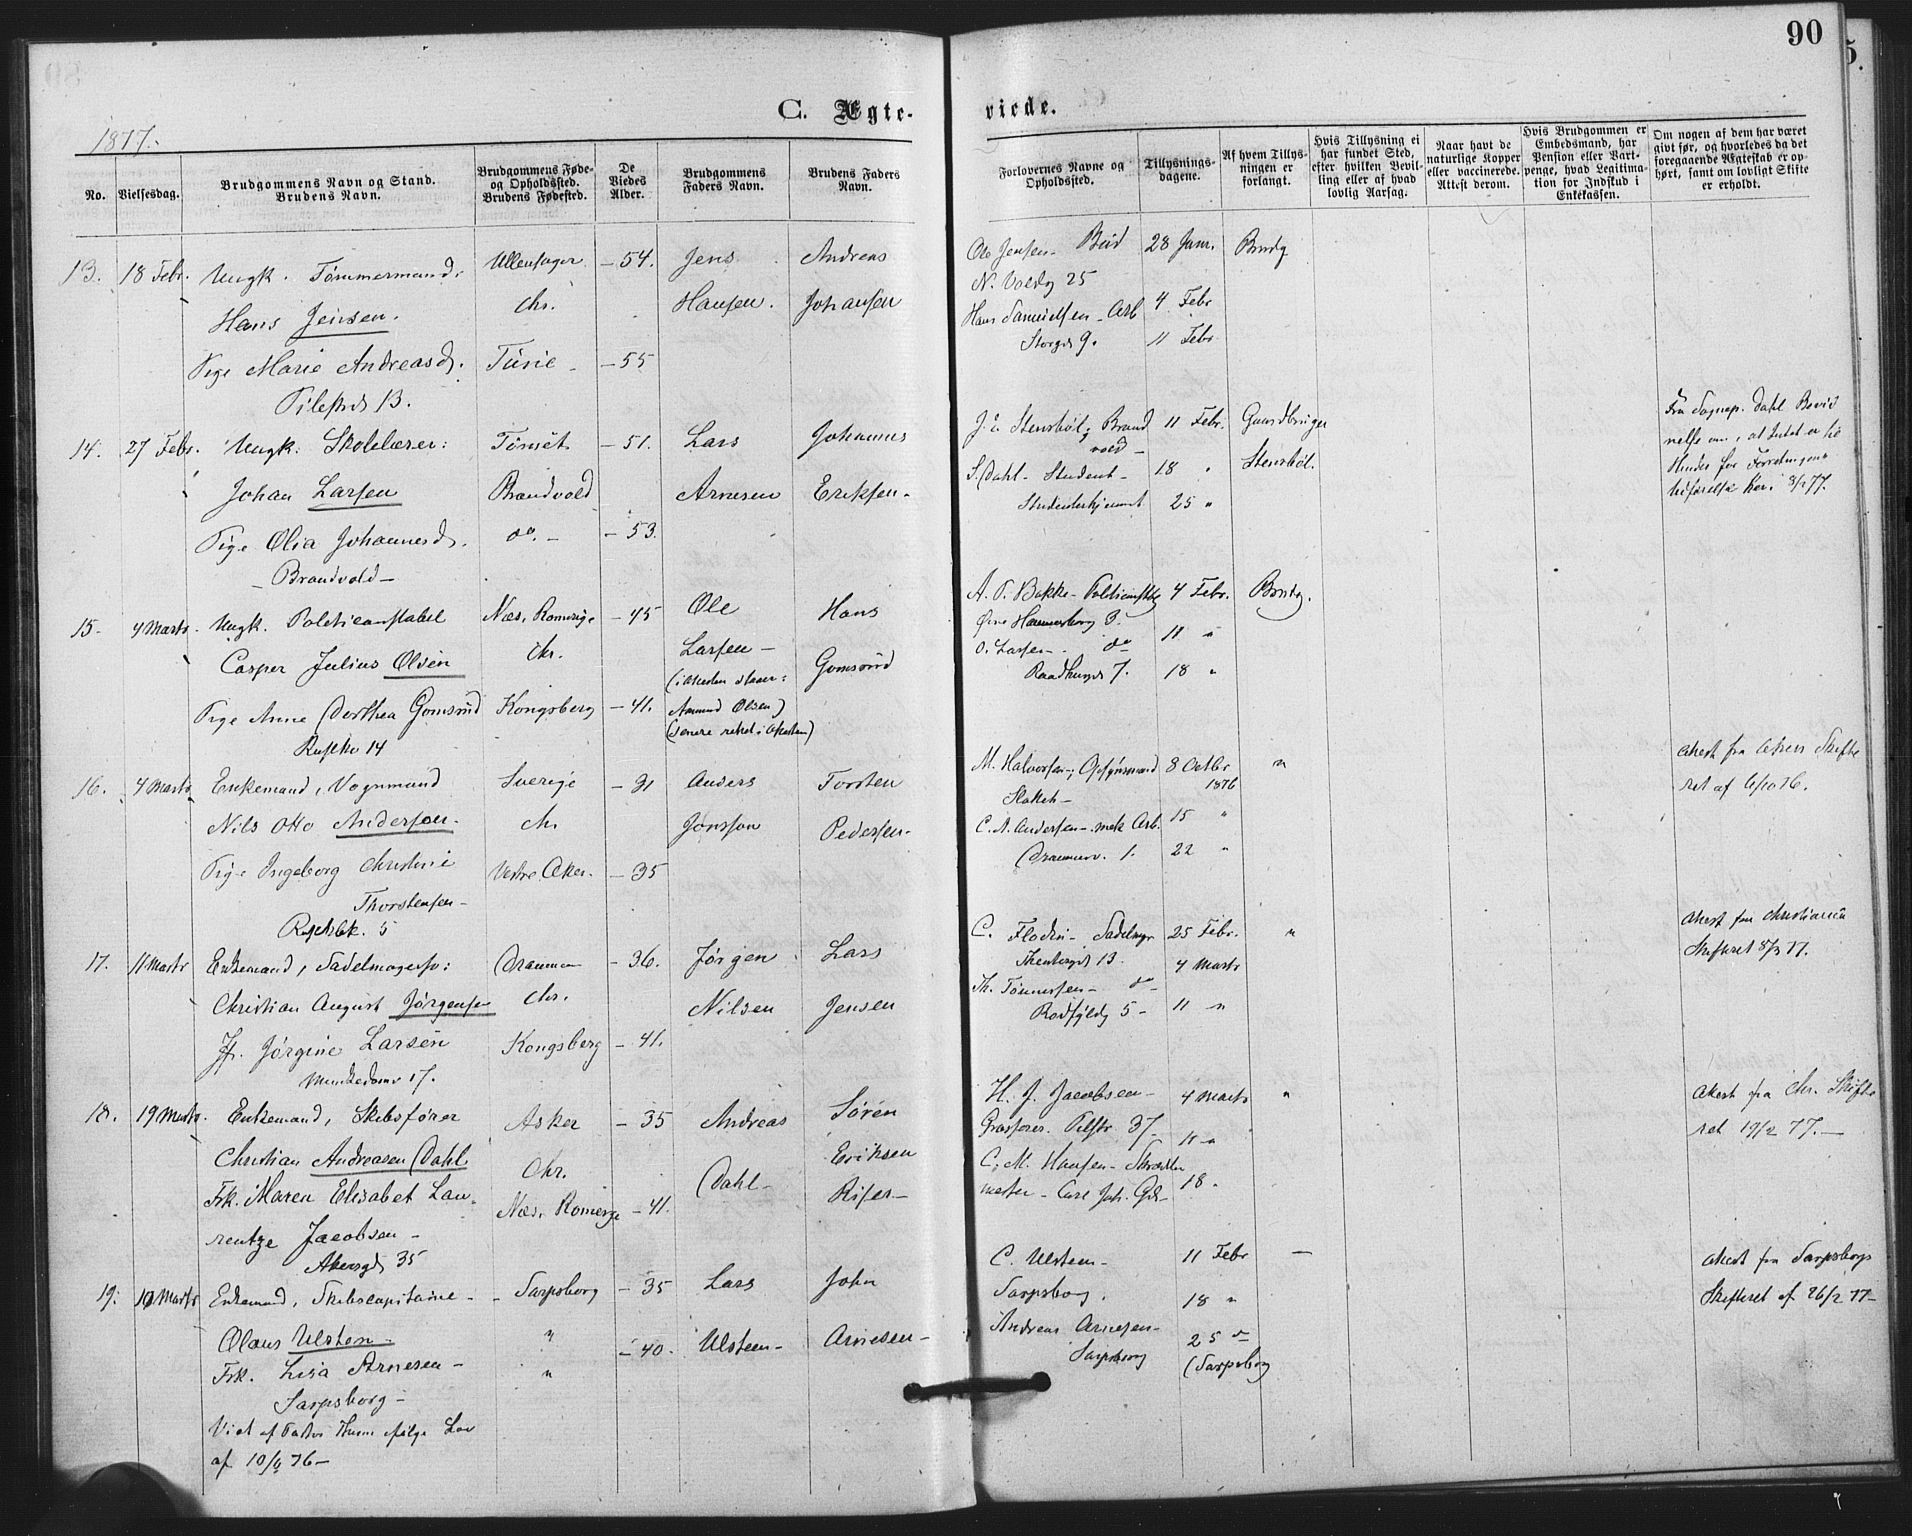 90
C. Ægte-
viede.
1877.
No.
Vielsesdag.
Brudgommens Navn og Stand.
Brudens Navn.
Brudgommens Føde-
og Opholdssted.
Brudens Fødested.
De
Viedes
Alder.
Brudgommens
Faders Navn.
Brudens Faders
Navn.
Forlovernes Navne og
Opholdssted.
Tillysnings-
dagene.
Af hvem Tillys-
ningen er
forlangt.
Hvis Tillysning ei
har fundet Sted,
efter hvilken Bevil-
ling eller af hvad
lovlig Aarsag.
Naar havt de
naturlige Kopper
eller vaccinerede.
Attest derom.
Hvis Brudgommen er
Embedsmand, har
Pension eller Vart-
penge, hvad Legitima-
tion for Indskud i
Enkekassen.
Om nogen af dem har været
givt før, og hvorledes da det
foregaaende Ægteskab er op-
hørt, samt om lovligt Skifte
er erholdt.
13. 18 Febr. Ungk. Tømmermand Ullensager - 54. Jens Andreas
Hans Jensen. Chr. Hansen. Johansen
Pige Marie Andreasd. - 55
13.
Ole Jensen - Bud 28 Janr. Brudg
N. Voldg 25
Hans Samuelsen - Arb 4 Febr
Storgd 9. 11 Febr.
14. 27 Febr. Ungk. Skolelærer: Tønset - 51. Lars Johannes
Johan Larsen Brandvold Arnesen Eriksen -
Pige Olia Johannesd. do. - - 53.
- Brandvold -
Brand 11 Febr. Gaardbruger
vold -
S. Dahl - Student - 18 " Stensbøl.
25 "
Fra Sognep. Dahl
15. 4 Marts. Ungk. Politiconstabel Næs, Romerige - 45 Ole Hans
Casper Julius Olsen Chr. Larsen - Gomsrud
Pige Anne Dorthea Gomsrud Kongsberg - 41. Amund Olsen)
14
A. P. Bakke - 4 Febr. Brudg.
Øvre Hammersborg 3. 11 "
O. Larsen - do
Raadhusgd 7. 18 "
16. 4 Marts Enkemand, Vognmand Sverige - 31 Anders Torsten
Nils Otto Anderson. Chr Jonsson Pedersen -
Pige Ingeborg Christine Vestre Aker. - 35
Thorstensen -
5
M. Halvorsen - Opsynsmand 8 Octbr "
1876
C. A. Andersen - mek Arb. 15 "
Drammensv. 1. 22 "
Attest fra Akers Skifte
ret af 6/10 76.
17. 11 Marts Enkemand, Sadelmagersv: Drammen - 36. Jørgen Lars
Christian August Jørgensen Chr. Nilsen Jensen
Jfr. Jørgine Larsen Kongsberg - 41.
Munkedamsv 17.
C. Flodin - Sadelmgr 25 Febr. "
13. 4 Marts
Th. Tønnesen - do -
Rodfyldg 5 - 11 "
Attest fra Christiania
Skifteret 8/2 77.
18. 19 Marts. Enkemand, Skibsfører Asker - 35 Andreas Søren
Christian Andreasen Dahl. Chr. Dahl - Eriksen
Frk. Maren Elisabet Lau- Næs, Romerige - 41.
rentze Jacobsen -
Akersgd 35
H. J. Jacobsen - 4 Marts "
37 - 11 "
C. M. Hansen - Skrædder
mester - Carl Joh. Gd - 18 "
Attest fra Chr. Skifte
ret 19/2 77. -
19. 19 Marts Enkemand, Skibscapitaine - - Sarpsborg - 35 Lars John
Olaus Ulsten - " - 40. Ulsteen - Arnesen -
Frk. Lisa Arnesen - "
Sarpsborg -
Viet af Pastor ifølge Lov
af 10/6 76 -
C. Ulsteen - 11 Febr -
Sarpsborg. 18 "
Andreas Arnesen - 25 do
Sarpsborg (Sarpsborg)
Attest fra Sarpsborgs
Skifteret af 26/2 77 -